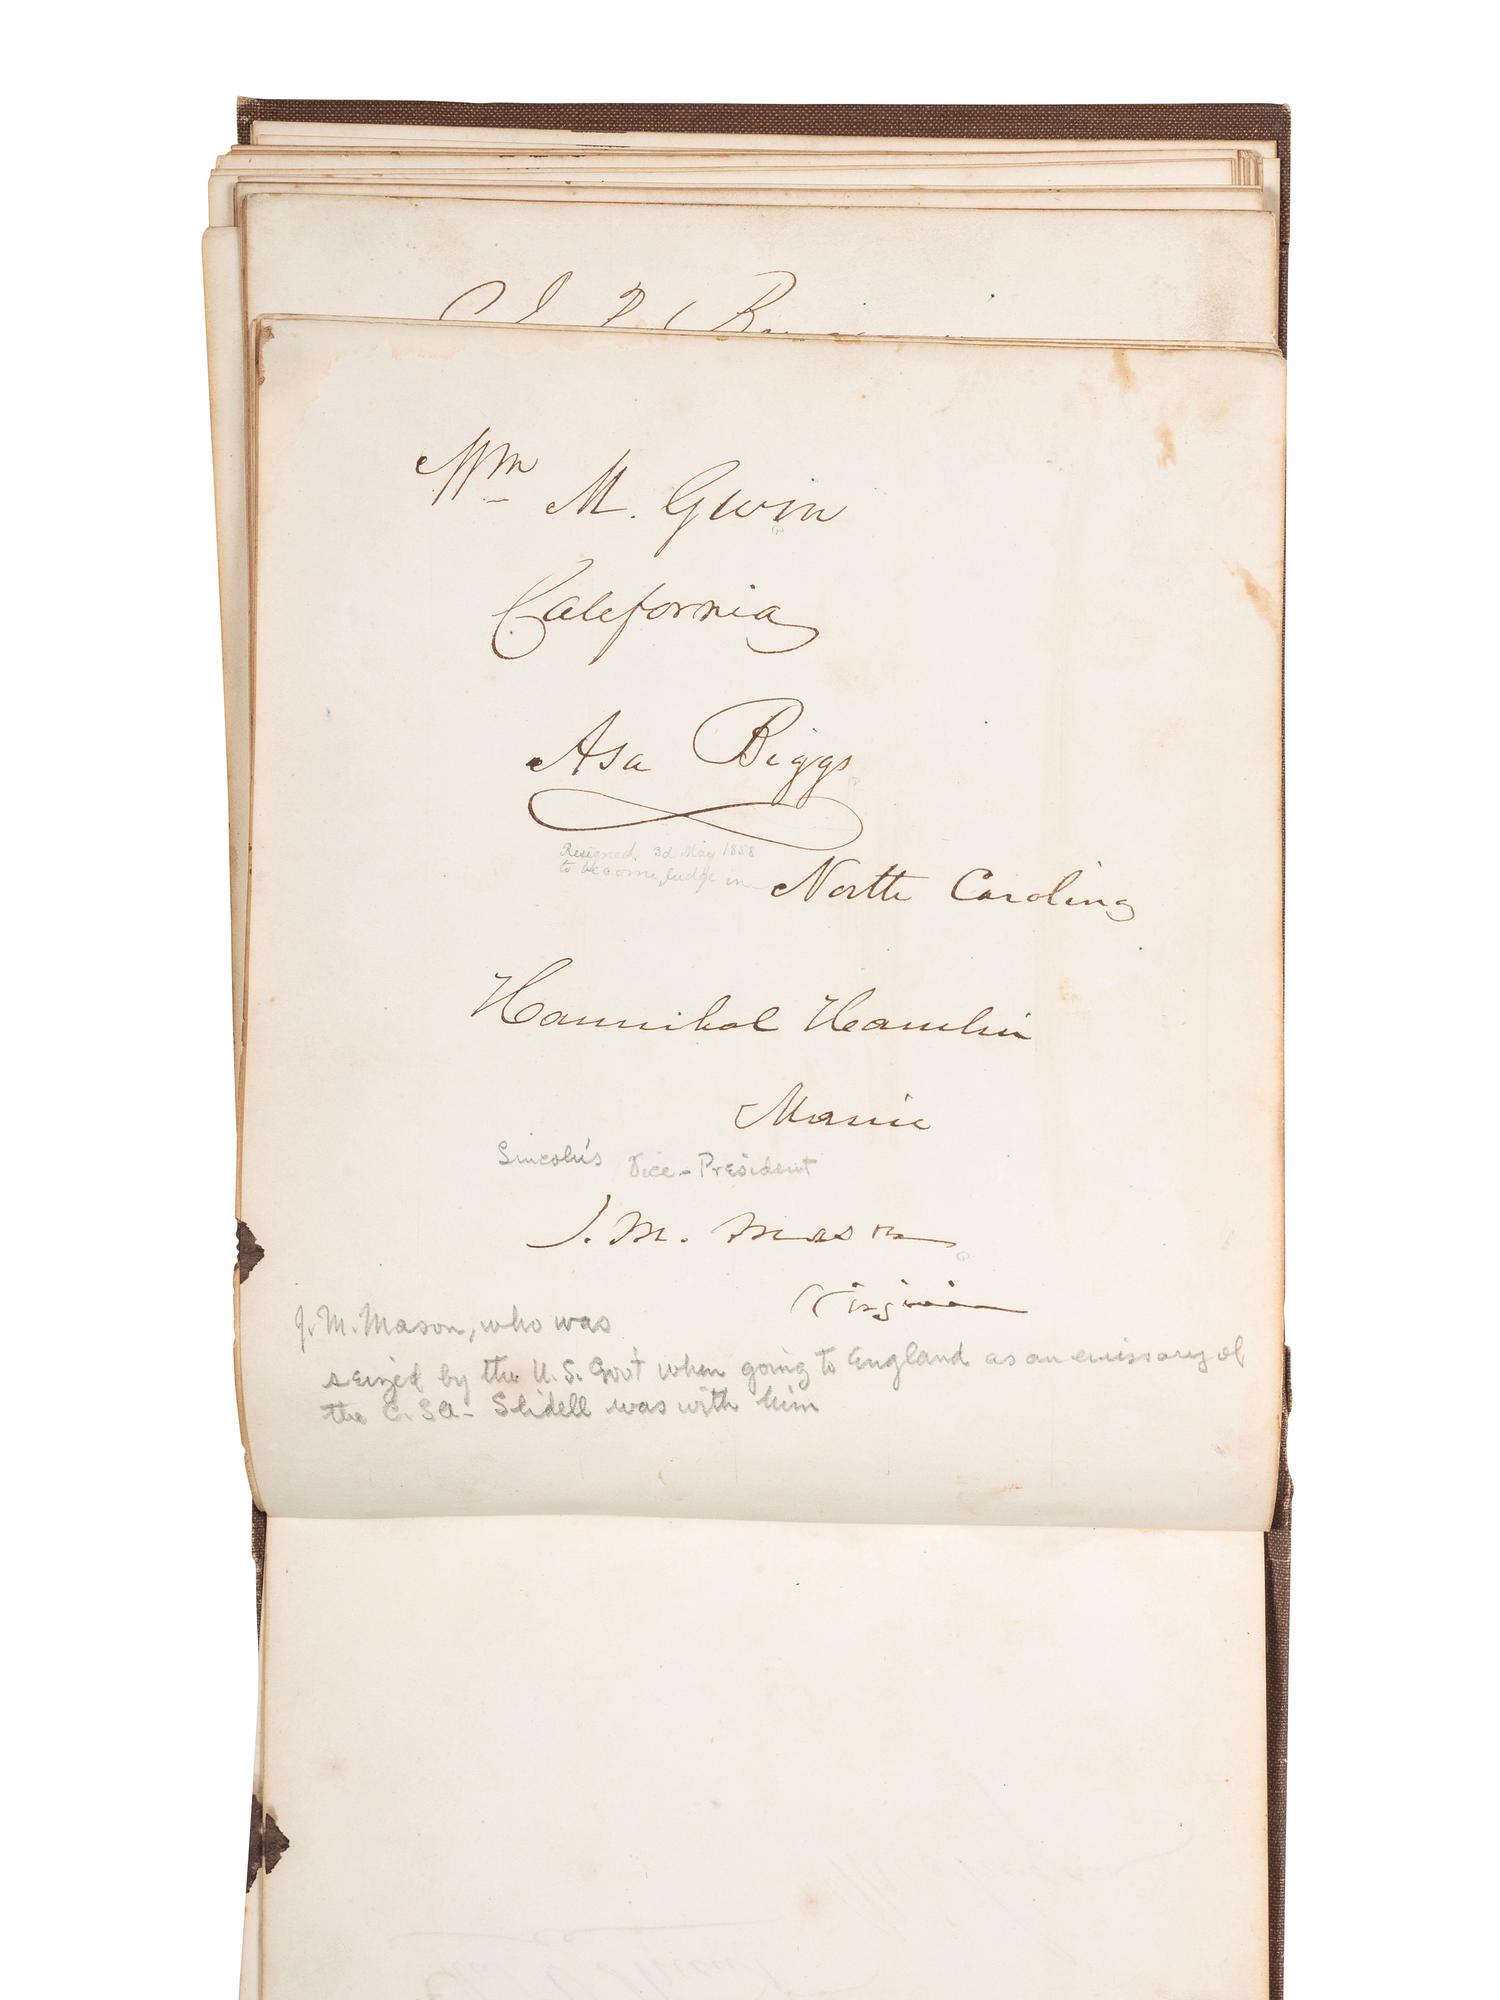 Wm M. Gwin
California
Asa Biggs
Resigned 3d May 1858
to become judge in
North Carolina
Hannibal Hamlin
Maine
Lincoln's Vice-President
J. M. Mason
Virginia
J. M. Mason, who was
seized by the U.S. Govt when going to England as an emissary of
the C.S.A- Slidell was with him